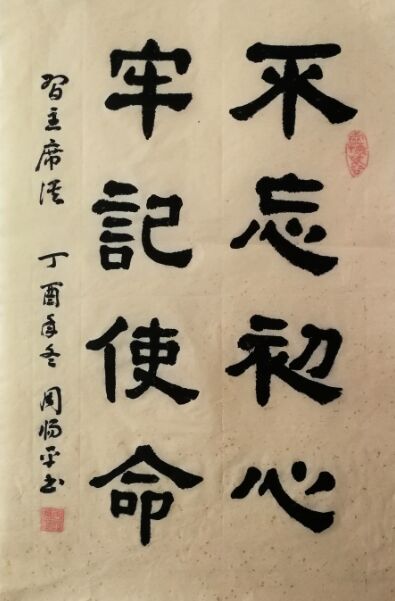 不忘初心
牢記使命
習主席 丁酉年冬 周 平书